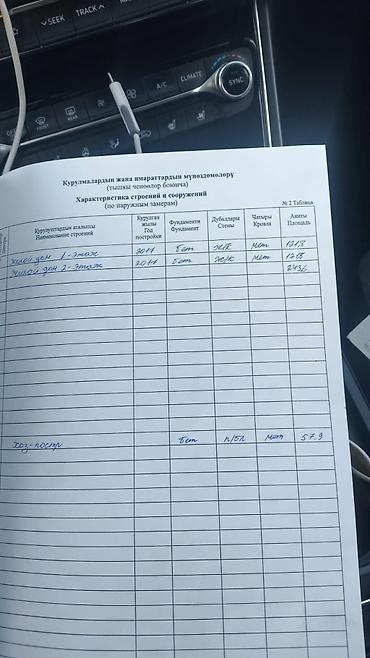 SEEK
TRACK
A/C
CLIMATE
SYNC
FRONT
REAR
Курулмалардын жана имараттардын мүнөздөмөлөрү
(тышкы ченөөлөр боюнча)
Характеристика строений и сооружений
(по наружным замерам)
№ 2 Таблица
Курулуштардын аталышы
Наименование строений
Курулган жылы
Год постройки
Фундаменти
Фундамент
Дубалдары
Стены
Чатыры
Кровля
Аянты
Площадь
Жилой дом 1-этаж 2017 бет ж/к мет 121,8
Жилой дом 2-этаж 2017 бет ж/к мет 121,8
243,6
Хоз-постр бет п/бл мет 57.9